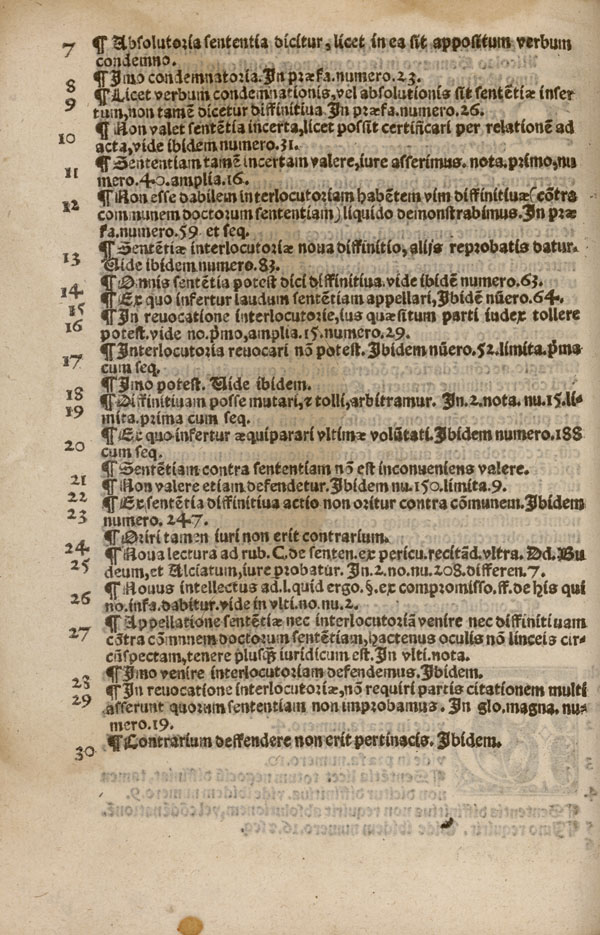 7 ¶ Absolutoria sententia dicitur, licet in ea sit appositum verbum
condemno.
8 ¶ Imo condemnatoria. In præfa. numero. 23.
9 ¶ Licet verbum condemnationis, vel absolutionis sit sentētiæ inser
tum, non tamē dicetur diffinitiua. In præfa. numero. 26.
10 ¶ Non valet sentētia incerta, licet possit certificari per relationē ad
acta, vide ibidem numero. 31.
11 ¶ Sententiam tamē incertam valere, iure asserimus. nota. primo, nu
mero. 40. amplia. 16.
12 ¶ Non esse dabilem interlocutoriam habētem vim diffinitiuæ (cōtra
communem doctorum sententiam) liquido demonstrabimus. In præ
fa. numero. 59 et seq.
13 ¶ Sentētiæ interlocutoriæ noua diffinitio, alijs reprobatis datur.
Vide ibidem numero. 83.
14 ¶ Omnis sententia potest dici diffinitiua. vide ibidē numero. 63.
15 ¶ Ex quo infertur laudum sentētiam appellari, Ibidem nūero. 64.
16 ¶ In reuocatione interlocutorie, ius quæsitum parti iudex tollere
potest. vide no. p̄mo, amplia. 15. numero. 29.
17 ¶ Interlocutoria reuocari nō potest. Ibidem nūero. 52. limita. p̄ma
cum seq.
18 ¶ Imo potest. Vide ibidem.
19 ¶ Diffinitiuam posse mutari, & tolli, arbitramur. In. 2. nota. nu. 15. li-
mita. prima cum seq.
20 ¶ Ex quo infertur æquiparari vltimæ volūtati. Ibidem numero. 188
cum seq.
21 ¶ Sentētiam contra sententiam nō est inconueniens valere.
22 ¶ Non valere etiam defendetur. Ibidem nu. 150. limita. 9.
23 ¶ Ex sentētia diffinitiua actio non oritur contra cōmunem. Ibidem
numero. 247.
24 ¶ Oriri tamen iuri non erit contrarium.
25 ¶ Noua lectura ad rub. C. de senten. ex pericu. recitād. vltra. Dd. Bu
deum, et Alciatum, iure probatur. In. 2. no. nu. 208. differen. 7.
26 ¶ Nouus intellectus ad. l. quid ergo. §. ex compromisso. ff. de his qui
no. infa. dabitur. vide in vlti. no. nu. 2.
27 ¶ Appellatione sentētiæ nec interlocutoriā venire nec diffinitiuam
cōtra cōmnnem doctorum sentētiam, hactenus oculis nō linceis cir-
cūspectam, tenere plusq̄ iuridicum est. In vlti. nota.
28 ¶ Imo venire interlocutoriam defendemus. Ibidem.
29 ¶ In reuocatione interlocutoriæ, nō requiri partis citationem multi
asserunt quorum sententiam non improbamus. In glo. magna. nu-
mero. 19.
30 ¶ Contrarium deffendere non erit pertinacis. Ibidem.